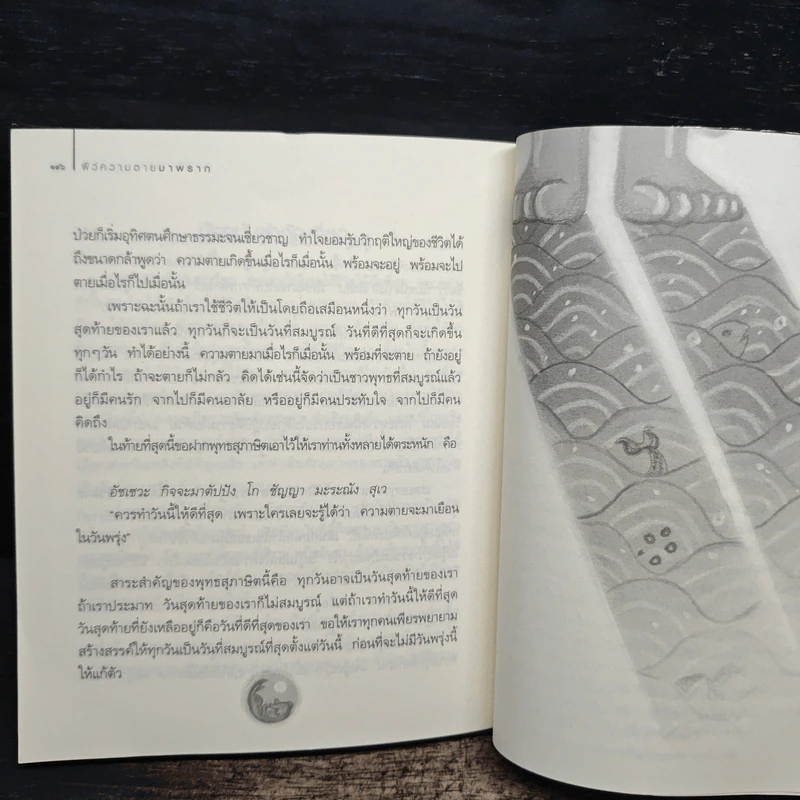 ๑๙๖ พิวความตายมาพราก
ป่วยก็เริ่มอุทิศตนศึกษาธรรมะจนเชี่ยวชาญ ทำใจยอมรับวิกฤติใหญ่ของชีวิตได้
ถึงขนาดกล้าพูดว่า ความตายเกิดขึ้นเมื่อไรก็เมื่อนั้น พร้อมจะอยู่ พร้อมจะไป
ตายเมื่อไรก็ไปเมื่อนั้น
เพราะฉะนั้นถ้าเราใช้ชีวิตให้เป็นโดยถือเสมือนหนึ่งว่า ทุกวันเป็นวัน
สุดท้ายของเราแล้ว ทุกวันก็จะเป็นวันที่สมบูรณ์ วันที่ดีที่สุดก็จะเกิดขึ้น
ทุกๆวัน ทำได้อย่างนี้ ความตายมาเมื่อไรก็เมื่อนั้น พร้อมที่จะตาย ถ้ายังอยู่
ก็ได้กำไร ถ้าจะตายก็ไม่กลัว คิดได้เช่นนี้จัดว่าเป็นชาวพุทธที่สมบูรณ์แล้ว
อยู่ก็มีคนรัก จากไปก็มีคนอาลัย หรืออยู่ก็มีคนประทับใจ จากไปก็มีคน
คิดถึง
ในท้ายที่สุดนี้ขอฝากพุทธสุภาษิตเอาไว้ให้เราท่านทั้งหลายได้ตระหนัก คือ
อัชเชวะ กิจจะมาตัปปัง โก ชัญญา มะระณัง สุเว
"ควรทำวันนี้ให้ดีที่สุด เพราะใครเลยจะรู้ได้ว่า ความตายจะมาเยือน
ในวันพรุ่ง"
สาระสำคัญของพุทธสุภาษิตนี้คือ ทุกวันอาจเป็นวันสุดท้ายของเรา
ถ้าเราประมาท วันสุดท้ายของเราก็ไม่สมบูรณ์ แต่ถ้าเราทำวันนี้ให้ดีที่สุด
วันสุดท้ายที่ยังเหลืออยู่ก็คือวันที่ดีที่สุดของเรา ขอให้เราทุกคนเพียรพยายาม
สร้างสรรค์ให้ทุกวันเป็นวันที่สมบูรณ์ที่สุดตั้งแต่วันนี้ ก่อนที่จะไม่มีวันพรุ่งนี้
ให้แก้ตัว